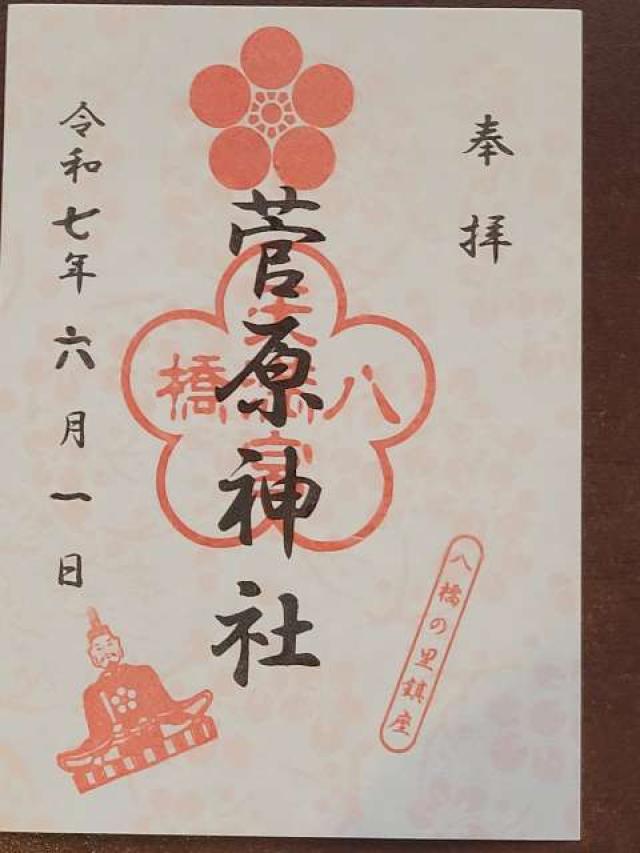 奉拝
八橋の里鎮座
菅原神社
八橋
天満宮
令和七年六月一日